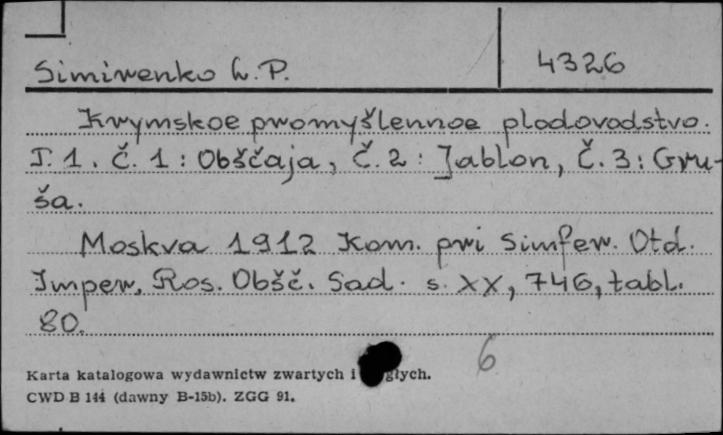 Simirenko L.P.
4326
Krymskoe promyšlennoe plodovodstvo.
T.1. Č.1: Obščaja, Č.2: Jablon, Č.3: Gru-
ša.
Moskva 1912 Kom. pri Simfer. Otd.
Imper. Ros. Obšč. Sad. s. XX, 746, tabl.
80.
6
Karta katalogowa wydawnictw zwartych i
CWD B 144 (dawny B-15b). ZGG 91.